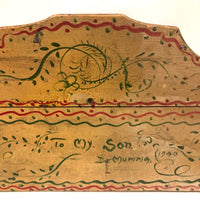 to My Son
De Mumma 1940